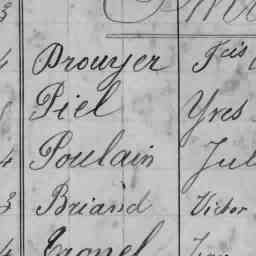 3
4 Drouyer Fcis
Piel Yves
4 Poulain Jul
3 Briand Victor
4